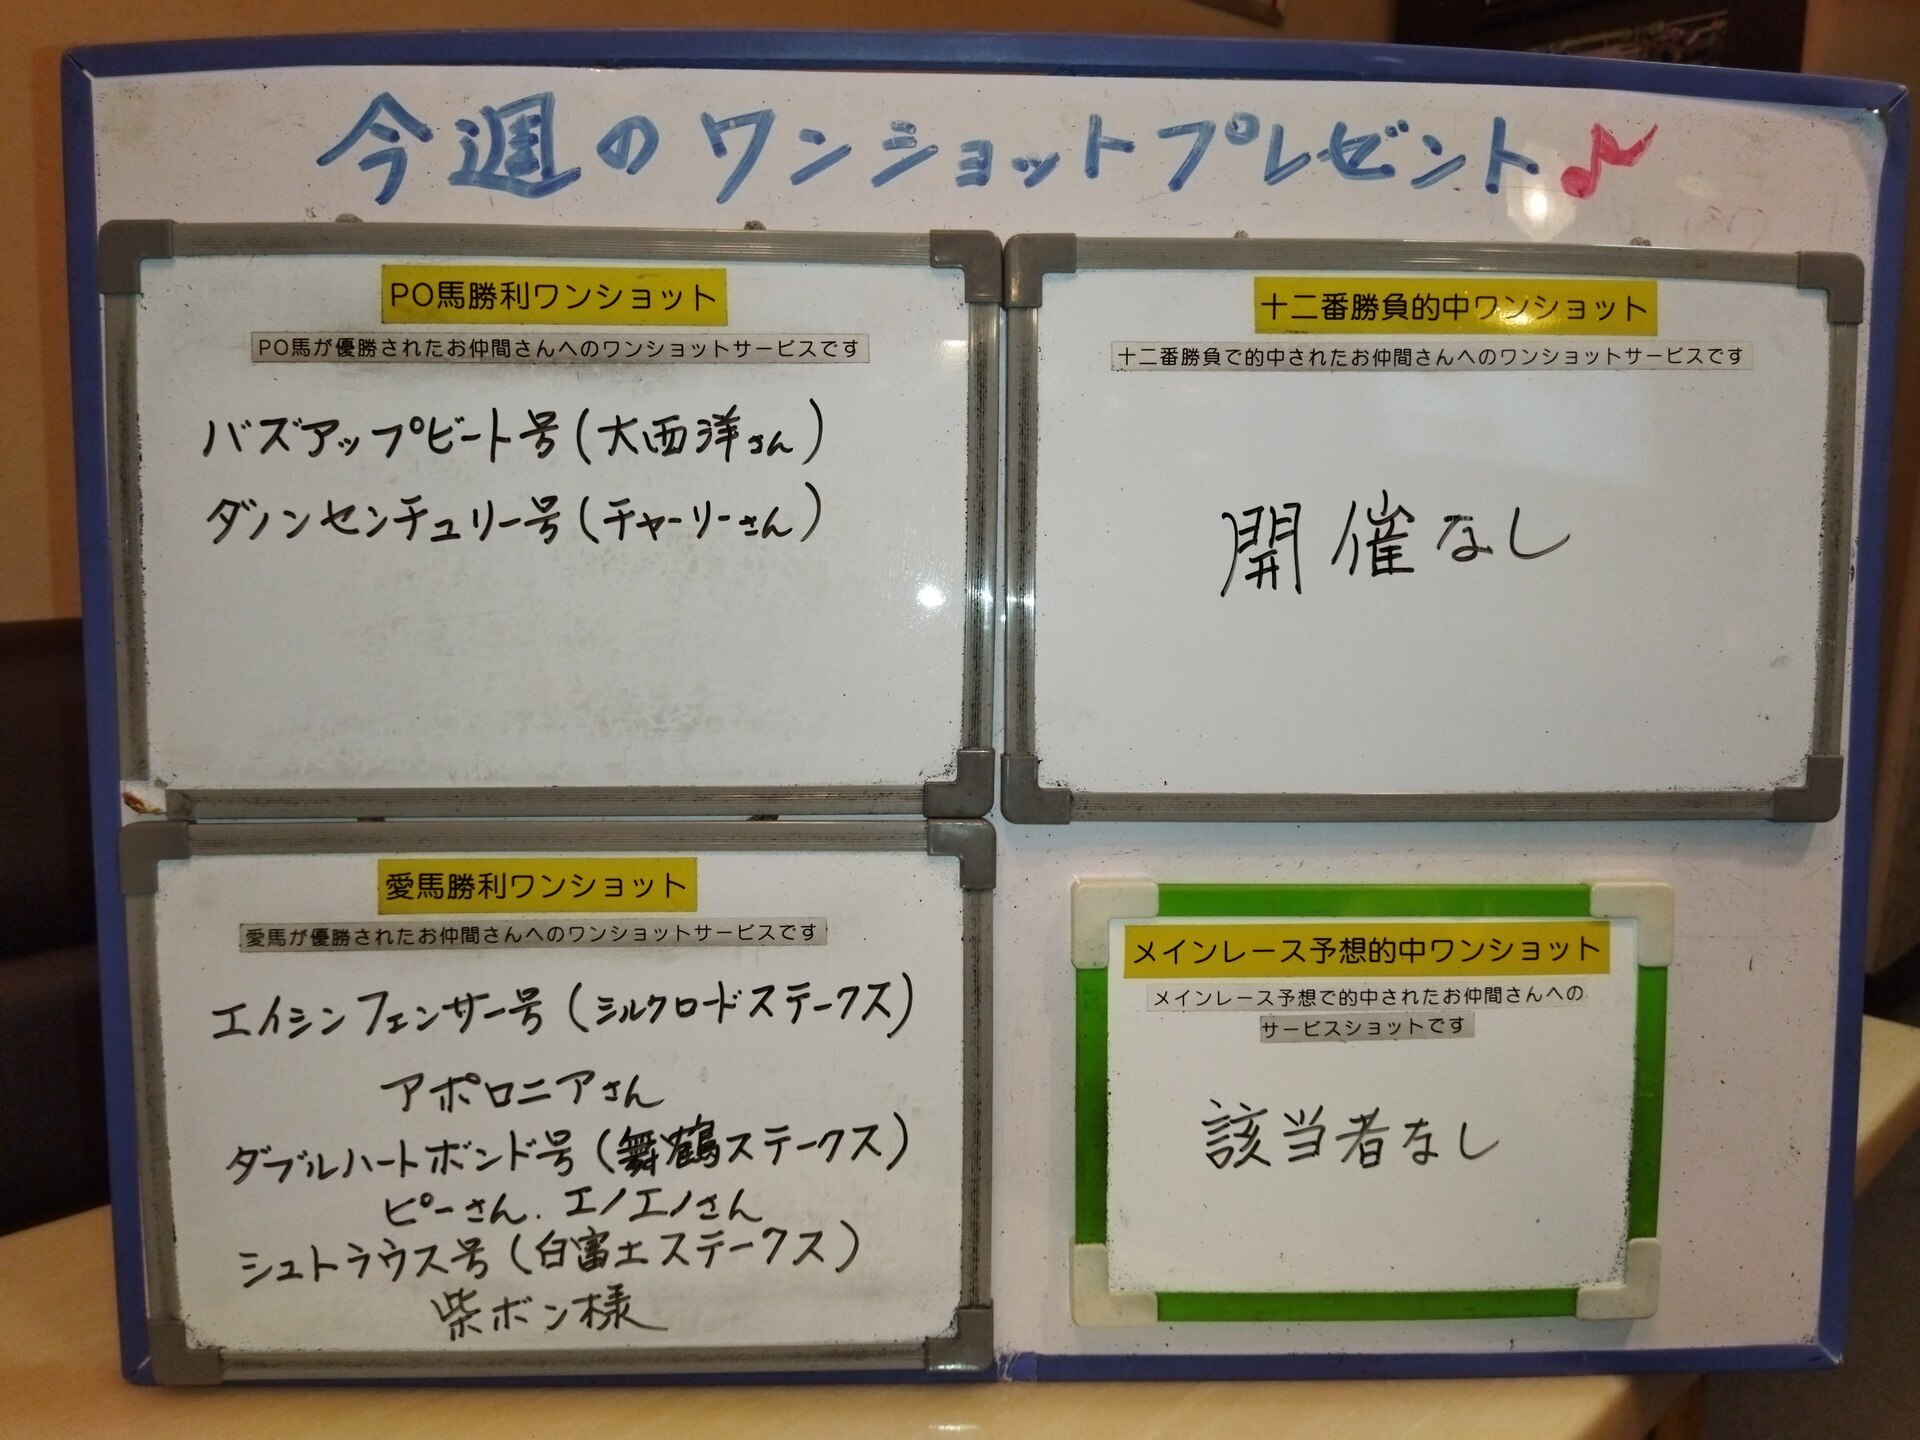 今週のワンショットプレゼント♪
PO馬勝利ワンショット
PO馬が優勝されたお仲間さんへのワンショットサービスです
バズアップビート号(大西洋さん)
ダノンセンチュリー号(チャーリーさん)
十二番勝負的中ワンショット
十二番勝負で的中されたお仲間さんへのワンショットサービスです
開催なし
愛馬勝利ワンショット
愛馬が優勝されたお仲間さんへのワンショットサービスです
エイシンフェンサー号(シルクロードステークス)
アポロニアさん
ダブルハートボンド号(舞鶴ステークス)
ピーさん、エノエノさん
シュトラウス号(白富士ステークス)
柴ボン様
メインレース予想的中ワンショット
メインレース予想で的中されたお仲間さんへの
サービスショットです
該当者なし